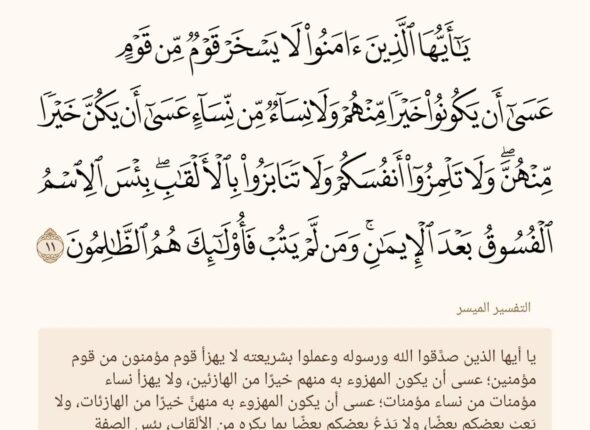 يَٰٓأَيُّهَا ٱلَّذِينَ ءَامَنُواْ لَا يَسۡخَرۡ قَوۡمٞ مِّن قَوۡمٍ
عَسَىٰٓ أَن يَكُونُواْ خَيۡرٗا مِّنۡهُمۡ وَلَا نِسَآءٞ مِّن نِّسَآءٍ عَسَىٰٓ أَن يَكُنَّ خَيۡرٗا
مِّنۡهُنَّۖ وَلَا تَلۡمِزُوٓاْ أَنفُسَكُمۡ وَلَا تَنَابَزُواْ بِٱلۡأَلۡقَٰبِۖ بِئۡسَ ٱلِٱسۡمُ
ٱلۡفُسُوقُ بَعۡدَ ٱلۡإِيمَٰنِۚ وَمَن لَّمۡ يَتُبۡ فَأُوْلَٰٓئِكَ هُمُ ٱلظَّٰلِمُونَ ١١
التفسير الميسر
يا أيها الذين صدَّقوا الله ورسوله وعملوا بشريعته لا يهزأ قوم مؤمنون من قوم
مؤمنين؛ عسى أن يكون المهزوء به منهم خيرًا من الهازئين، ولا يهزأ نساء
مؤمنات من نساء مؤمنات؛ عسى أن يكون المهزوء به منهنَّ خيرًا من الهازئات، ولا
يَعِبْ بعضكم بعضًا، ولا يَدْعُ بعضكم بعضًا بما يكره من الألقاب، بئس الصفة